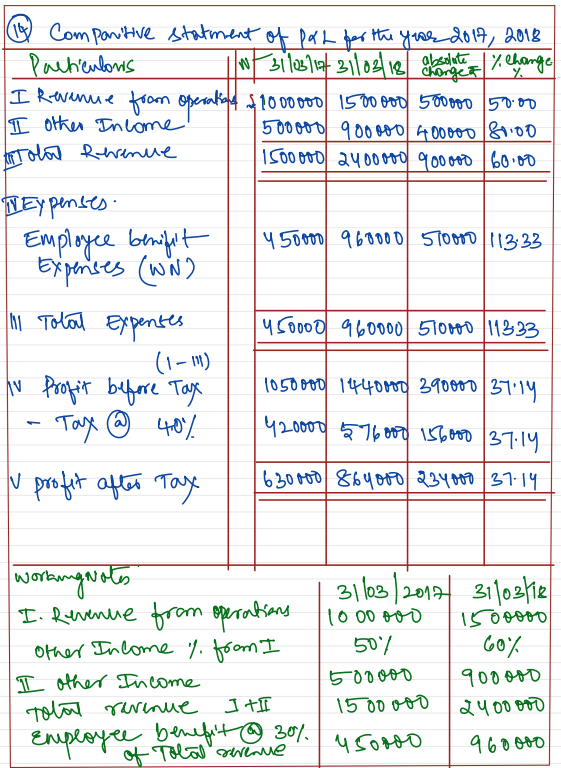 14 Comparitive statment of P&L for the year 2017, 2018
Particulars N 31/03/17 31/03/18 absolute change ₹ % change %
I Revenue from operations 1000000 1500000 500000 50.00
II Other Income 500000 900000 400000 80.00
III Total Revenue 1500000 2400000 900000 60.00
IV Expenses.
Employee benifit 450000 960000 510000 113.33
Expenses (WN)
III Total Expenses 450000 960000 510000 113.33
(I - III)
IV Profit before Tax 1050000 1440000 390000 37.14
- Tax @ 40% 420000 576000 156000 37.14
V profit after Tax 630000 864000 234000 37.14
Working Notes
31/03/2017 31/03/18
I. Revenue from operations 1000000 1500000
Other Income % from I 50% 60%
II other Income 500000 900000
Total revenue I+II 1500000 2400000
Employee benefit @ 30% of Total revenue 450000 960000